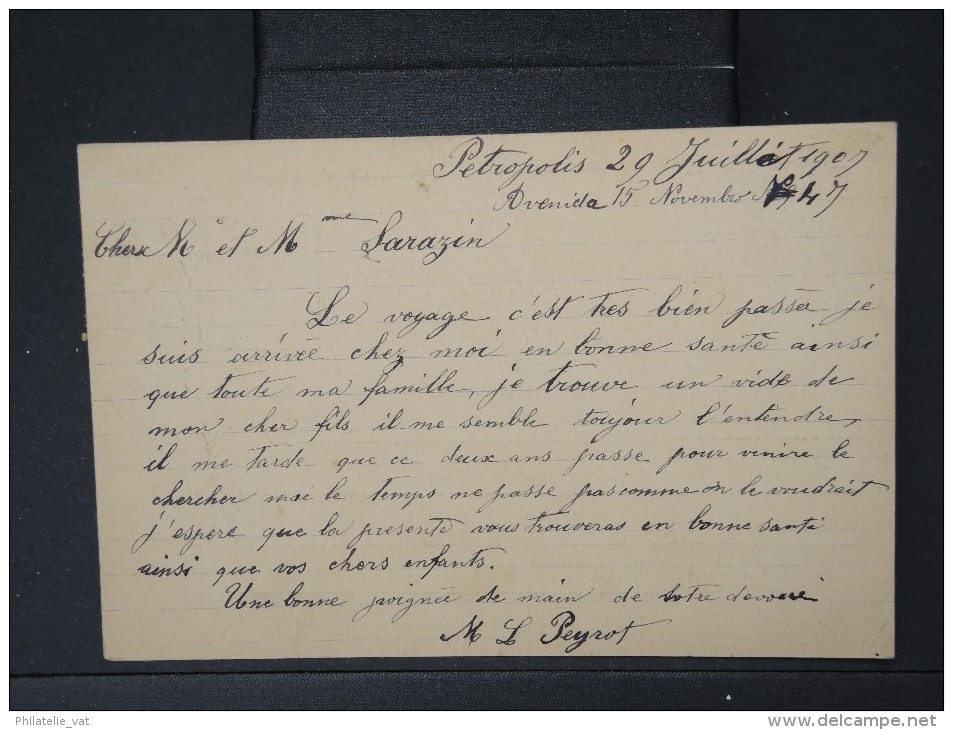 Petropolis 29 Juillet 1907
Avenida 15 Novembro 47
Cherx M et M me Sarazin
Le voyage c'est tres bien passée je
suis arrivée chez moi en bonne santé ainsi
que toute ma famille, je trouve un vide de
mon cher fils il me semble toujour l'entendre,
il me tarde que ce deux ans passe pour venire le
chercher mai le temps ne passe pas comme on le voudrait
j'espere que la presente vous trouveras en bonne santé
ainsi que vos chers enfants.
Une bonne poignée de main de votre devoué
M L Peyrot
Philatelie_vat
www.delcampe.net